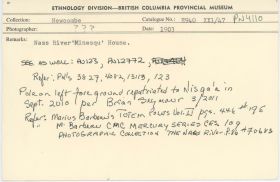 ETHNOLOGY DIVISION—BRITISH COLUMBIA PROVINCIAL MUSEUM
Collector: Newcombe
Catalogue No.: PN4110
Photographer: ???
Date: 1903
Remarks:
Nass River "Minesqu" House.
SEE AS WELL:
Refer: PN's 3827, 4092, 13113, 123
Pole on left foreground repatriated to Nisga'a in
Sept. 2010 / per Brian Seymour 3/2011
Refer: Marius Barbeau's TOTEM POLES Vol. II pgs. 446 + 196
M. Barbeau CMC MERCURY SERIES CES 109
PHOTOGRAPHIC COLLECTION THE NASS RIVER